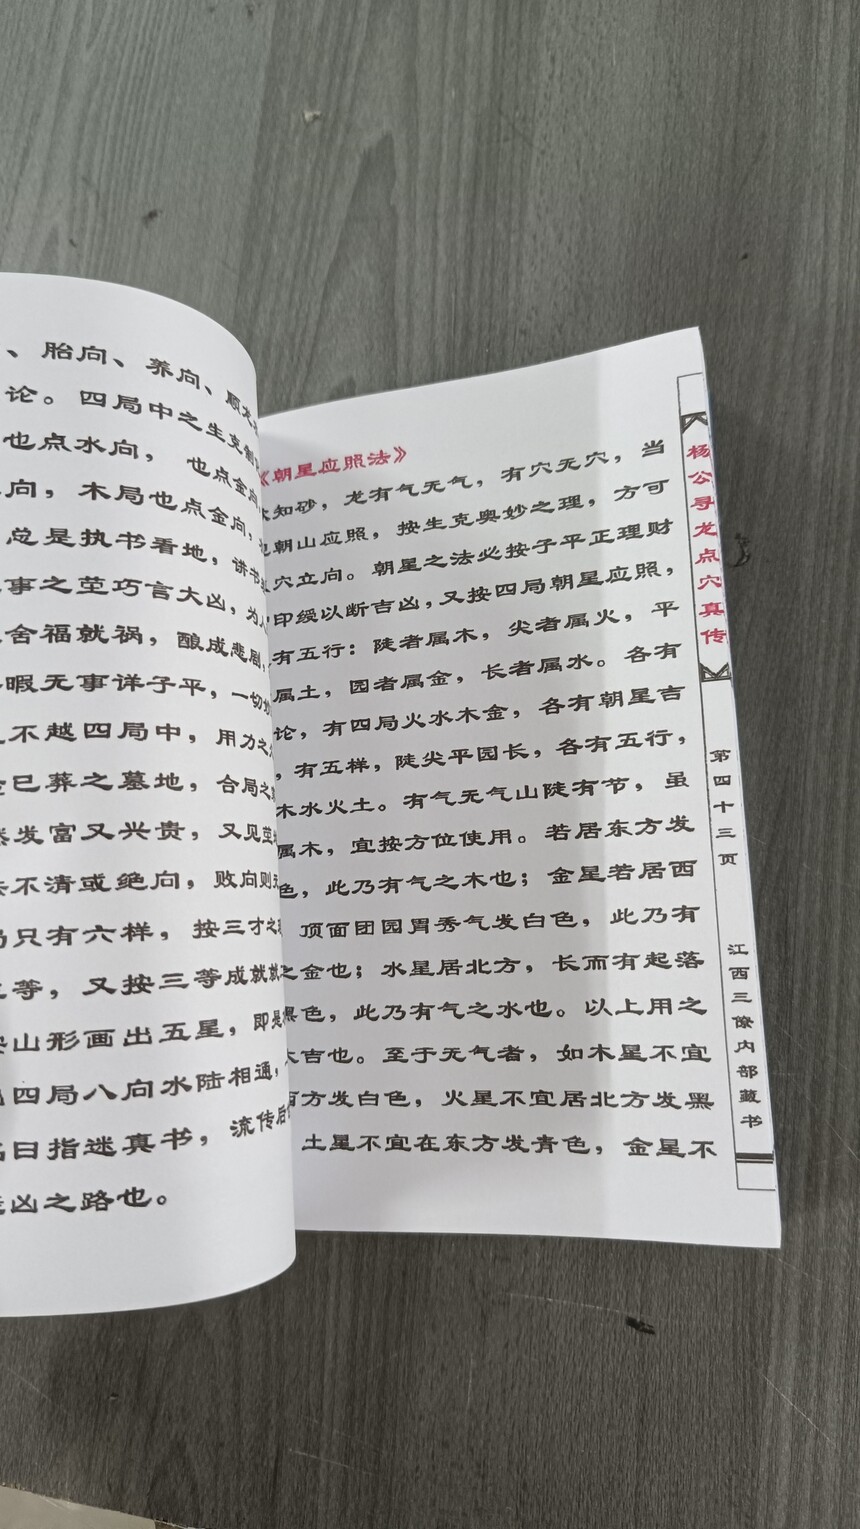 、胎向、养向、顺龙
论。四局中之生克制
也点水向，也点金向
向，木局也点金向，
总是执书看地，讲书
事之茔巧言大凶，为人
舍福就祸，酿成悲剧，
暇无事详子平，一切
不越四局中，用力之
已葬之墓地，合局之
发富又兴贵，又见茔
不清或绝向，败向则
只有六样，按三才之
等，又按三等成就就
山形画出五星，即是
四局八向水陆相通，
曰指迷真书，流传后
凶之路也。
《朝星应照法》
知砂，龙有气无气，有穴无穴，当
朝山应照，按生克奥妙之理，方可
穴立向。朝星之法必按子平正理财
印绶以断吉凶，又按四局朝星应照，
有五行：陡者属木，尖者属火，平
属土，园者属金，长者属水。各有
论，有四局火水木金，各有朝星吉
，有五样，陡尖平园长，各有五行，
木水火土。有气无气山陡有节，虽
属木，宜按方位使用。若居东方发
色，此乃有气之木也；金星若居西
顶面团园胃秀气发白色，此乃有
之金也；水星居北方，长而有起落
黑色，此乃有气之水也。以上用之
大吉也。至于无气者，如木星不宜
西方发白色，火星不宜居北方发黑
土星不宜在东方发青色，金星不
杨公寻龙点穴真传
第四十三页
江西三僚内部藏书